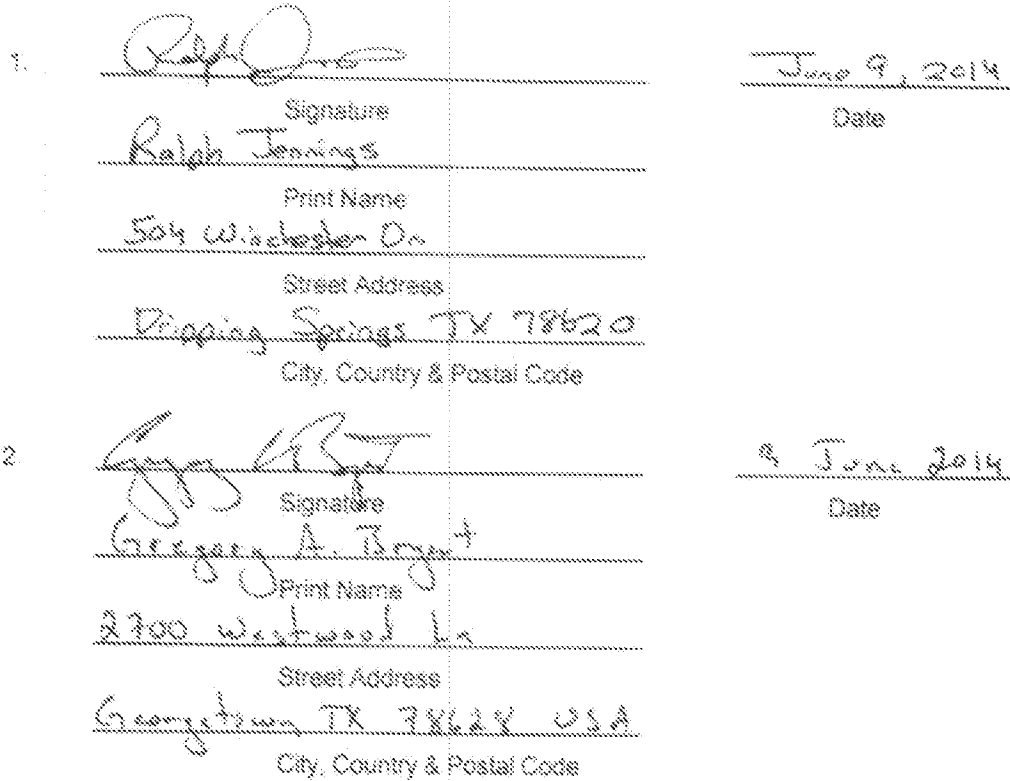 1. Ralph June 9, 2014
Signature Date
Ralph Jennings
Print Name
504 Winchester Dr
Street Address
Dripping Springs TX 78620
City, Country & Postal Code
2. Gregory A Bryant 9 June 2014
Signature Date
Gregory A. Bryant
Print Name
2700 Westwood Ln
Street Address
Georgetown TX 78628 USA
City, Country & Postal Code